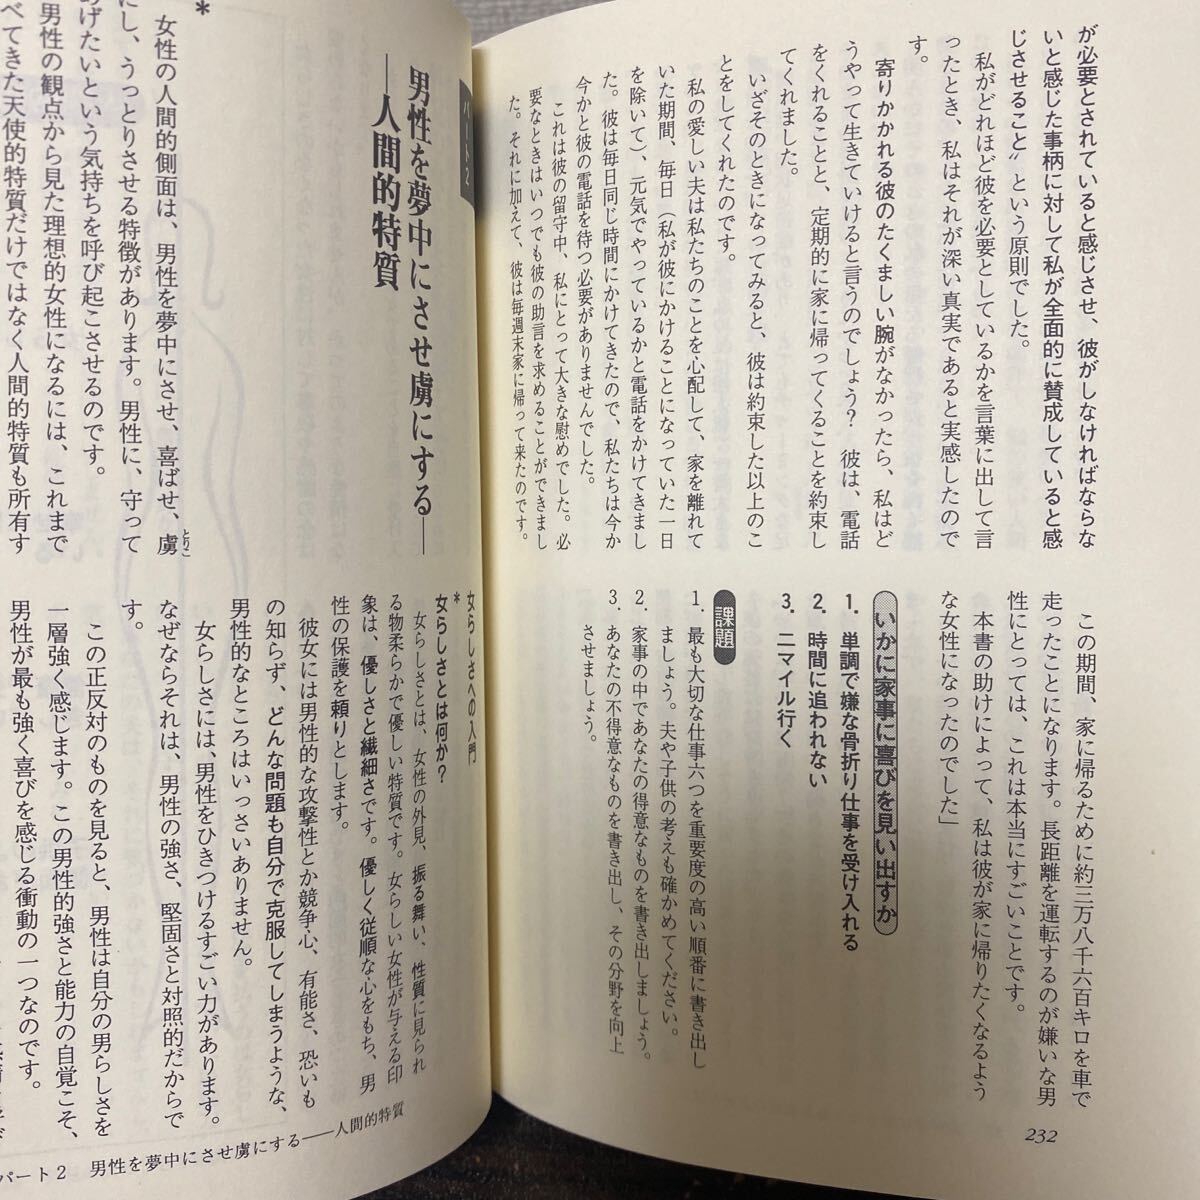 が必要とされていると感じさせ、彼がしなければならな
いと感じた事柄に対して私が全面的に賛成していると感
じさせること〟という原則でした。
私がどれほど彼を必要としているかを言葉に出して言
ったとき、私はそれが深い真実であると実感したので
す。
寄りかかれる彼のたくましい腕がなかったら、私はど
うやって生きていけると言うのでしょう? 彼は、電話
をくれることと、定期的に家に帰ってくることを約束し
てくれました。
いざそのときになってみると、彼は約束した以上のこ
とをしてくれたのです。
私の愛しい夫は私たちのことを心配して、家を離れて
いた期間、毎日(私が彼にかけることになっていた一日
を除いて)、元気でやっているかと電話をかけてきまし
た。彼は毎日同じ時間にかけてきたので、私たちは今か
今かと彼の電話を待つ必要がありませんでした。
これは彼の留守中、私にとって大きな慰めでした。必
要なときはいつでも彼の助言を求めることができまし
た。それに加えて、彼は毎週末家に帰って来たのです。
この期間、家に帰るために約三万八千六百キロを車で
走ったことになります。長距離を運転するのが嫌いな男
性にとっては、これは本当にすごいことです。
本書の助けによって、私は彼が家に帰りたくなるよう
な女性になったのでした」
いかに家事に喜びを見い出すか
1. 単調で嫌な骨折り仕事を受け入れる
2. 時間に追われない
3. 二マイル行く
課題
1. 最も大切な仕事六つを重要度の高い順番に書き出し
ましょう。夫や子供の考えも確かめてください。
2. 家事の中であなたの得意なものを書き出しましょう。
3. あなたの不得意なものを書き出し、その分野を向上
させましょう。
232
パート2
男性を夢中にさせ虜にする―
―人間的特質
*
女性の人間的側面は、男性を夢中にさせ、喜ばせ、虜
とりこ
にし、うっとりさせる特徴があります。男性に、守って
あげたいという気持ちを呼び起こさせるのです。
男性の観点から見た理想的女性になるには、これまで
べてきた天使的特質だけではなく人間的特質も所有す
女らしさへの入門
*
女らしさとは何か?
女らしさとは、女性の外見、振る舞い、性質に見られ
る物柔らかで優しい特質です。女らしい女性が与える印
象は、優しさと繊細さです。優しく従順な心をもち、男
性の保護を頼りとします。
彼女には男性的な攻撃性とか競争心、有能さ、恐いも
の知らず、どんな問題も自分で克服してしまうような、
男性的なところはいっさいありません。
女らしさには、男性をひきつけるすごい力があります。
なぜならそれは、男性の強さ、堅固さと対照的だからで
す。
この正反対のものを見ると、男性は自分の男らしさを
一層強く感じます。この男性的強さと能力の自覚こそ、
男性が最も強く喜びを感じる衝動の一つなのです。
パート2 男性を夢中にさせ虜にする――人間的特質